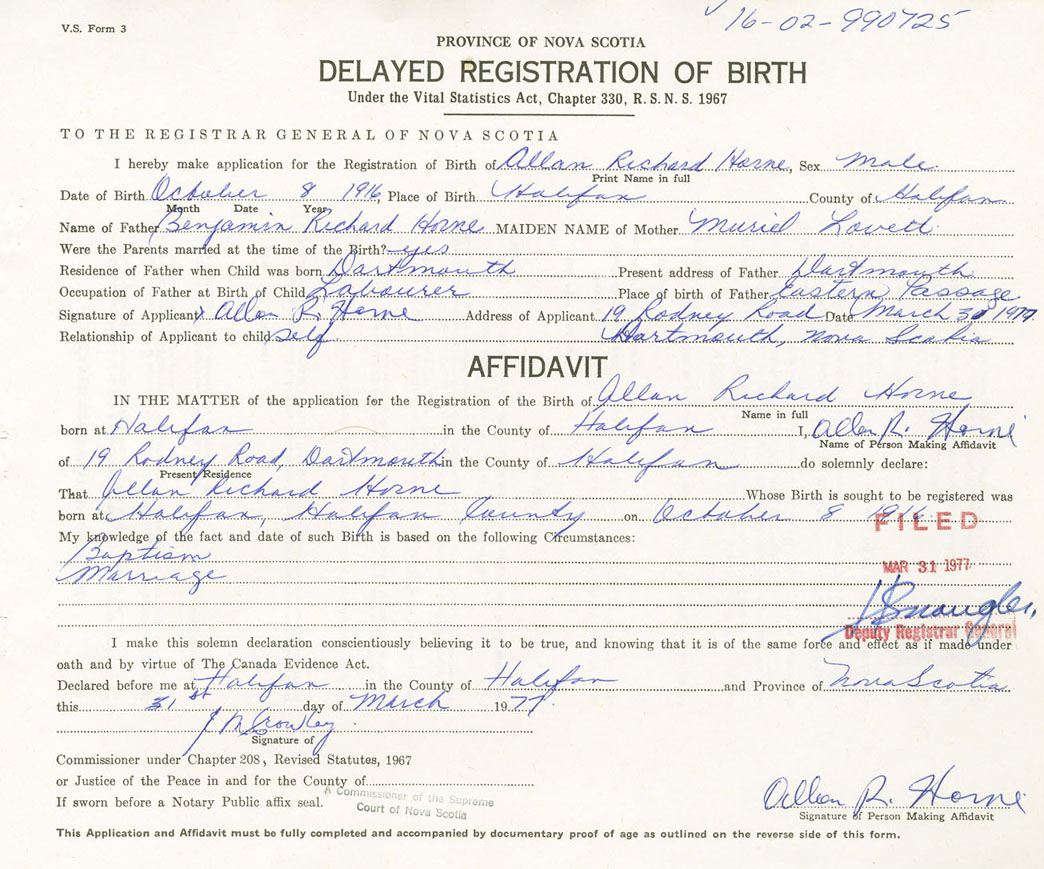 V.S. Form 3
16-02-990725
PROVINCE OF NOVA SCOTIA
DELAYED REGISTRATION OF BIRTH
Under the Vital Statistics Act, Chapter 330, R. S. N. S. 1967
TO THE REGISTRAR GENERAL OF NOVA SCOTIA
I hereby make application for the Registration of Birth of Allan Richard Horne, Sex Male
Print Name in full
Date of Birth October 8 1916, Place of Birth Halifax County of Halifax
Month Date Year
Name of Father Benjamin Richard Horne MAIDEN NAME of Mother Muriel Lovett
Were the Parents married at the time of the Birth? yes
Residence of Father when Child was born Dartmouth Present address of Father Dartmouth
Occupation of Father at Birth of Child Labourer Place of birth of Father Eastern Passage
Signature of Applicant x Allan R. Horne Address of Applicant 19 Rodney Road Date March 30 1977
Relationship of Applicant to child self Dartmouth, Nova Scotia
AFFIDAVIT
IN THE MATTER of the application for the Registration of the Birth of Allan Richard Horne
Name in full
born at Halifax in the County of Halifax I, Allan R. Horne
Name of Person Making Affidavit
of 19 Rodney Road, Dartmouth in the County of Halifax do solemnly declare:
Present Residence
That Allan Richard Horne Whose Birth is sought to be registered was
born at Halifax, Halifax County on October 8 1916
FILED
My knowledge of the fact and date of such Birth is based on the following Circumstances:
Baptism
MAR 31 1977
Marriage
Deputy Registrar General
I make this solemn declaration conscientiously believing it to be true, and knowing that it is of the same force and effect as if made under
oath and by virtue of The Canada Evidence Act.
Declared before me at Halifax in the County of Halifax and Province of Nova Scotia
this 31st day of March 1977
Signature of
Commissioner under Chapter 208, Revised Statutes, 1967
or Justice of the Peace in and for the County of
If sworn before a Notary Public affix seal.
A Commissioner of the Supreme
Court of Nova Scotia
Allan R. Horne
Signature of Person Making Affidavit
This Application and Affidavit must be fully completed and accompanied by documentary proof of age as outlined on the reverse side of this form.